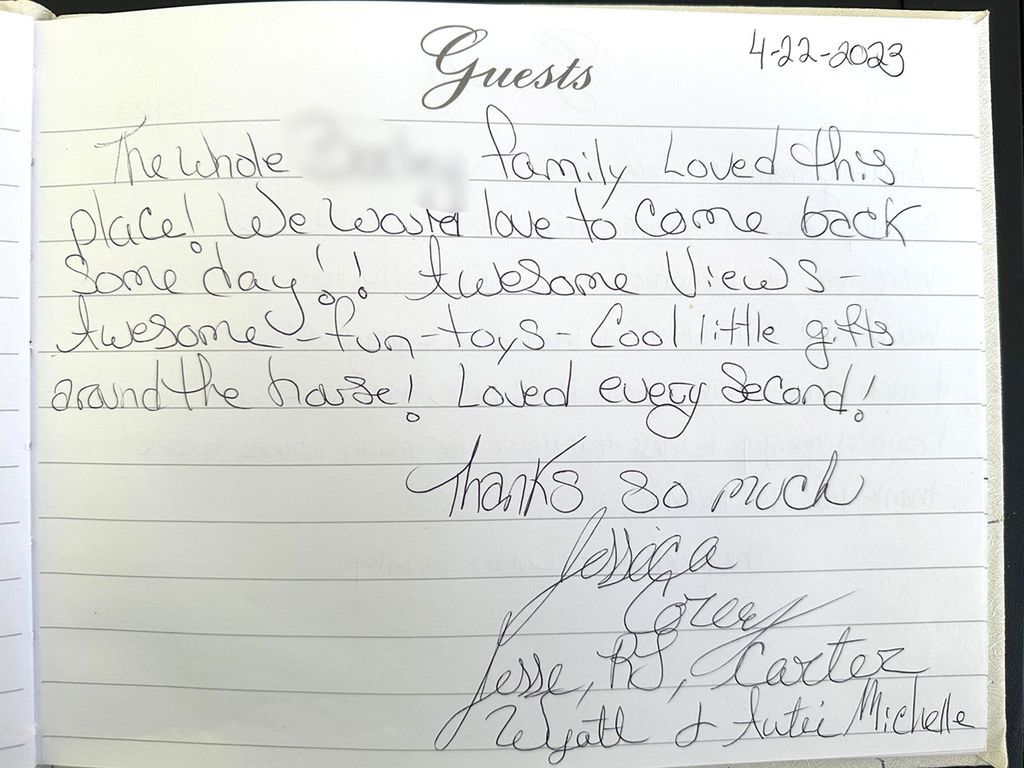 Guests
4-22-2023
The whole family Loved this
place! We would love to come back
some day!! Awesome Views-
Awesome-fun-toys- Cool little gifts
around the house! Loved every second!
Thanks so much
Jessica
Corey
Jesse, RJ, Carter
Wyatt & Michelle